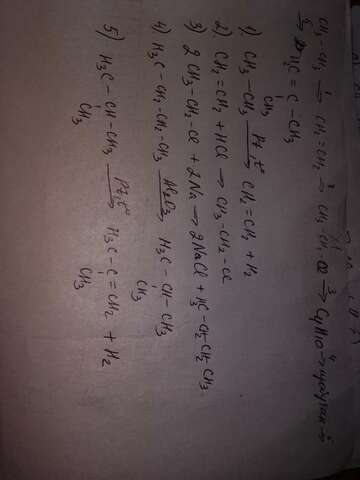 CH₃-CH₃ →¹ CH₂=CH₂ →² CH₃-CH₂Cl →³ C₄H₁₀ →⁴ изобутан →⁵
→⁵ H₂C=C-CH₃
CH₃
1) CH₃-CH₃ →(Pt, t°) CH₂=CH₂ + H₂
2) CH₂=CH₂ + HCl → CH₃-CH₂-Cl
3) 2CH₃-CH₂-Cl + 2Na → 2NaCl + H₃C-CH₂-CH₂CH₃
4) H₃C-CH₂-CH₂-CH₃ →(Al₂O₃) H₃C-CH-CH₃
CH₃
5) H₃C-CH-CH₃ →(Pt, t°) H₃C-C=CH₂ + H₂
CH₃ CH₃